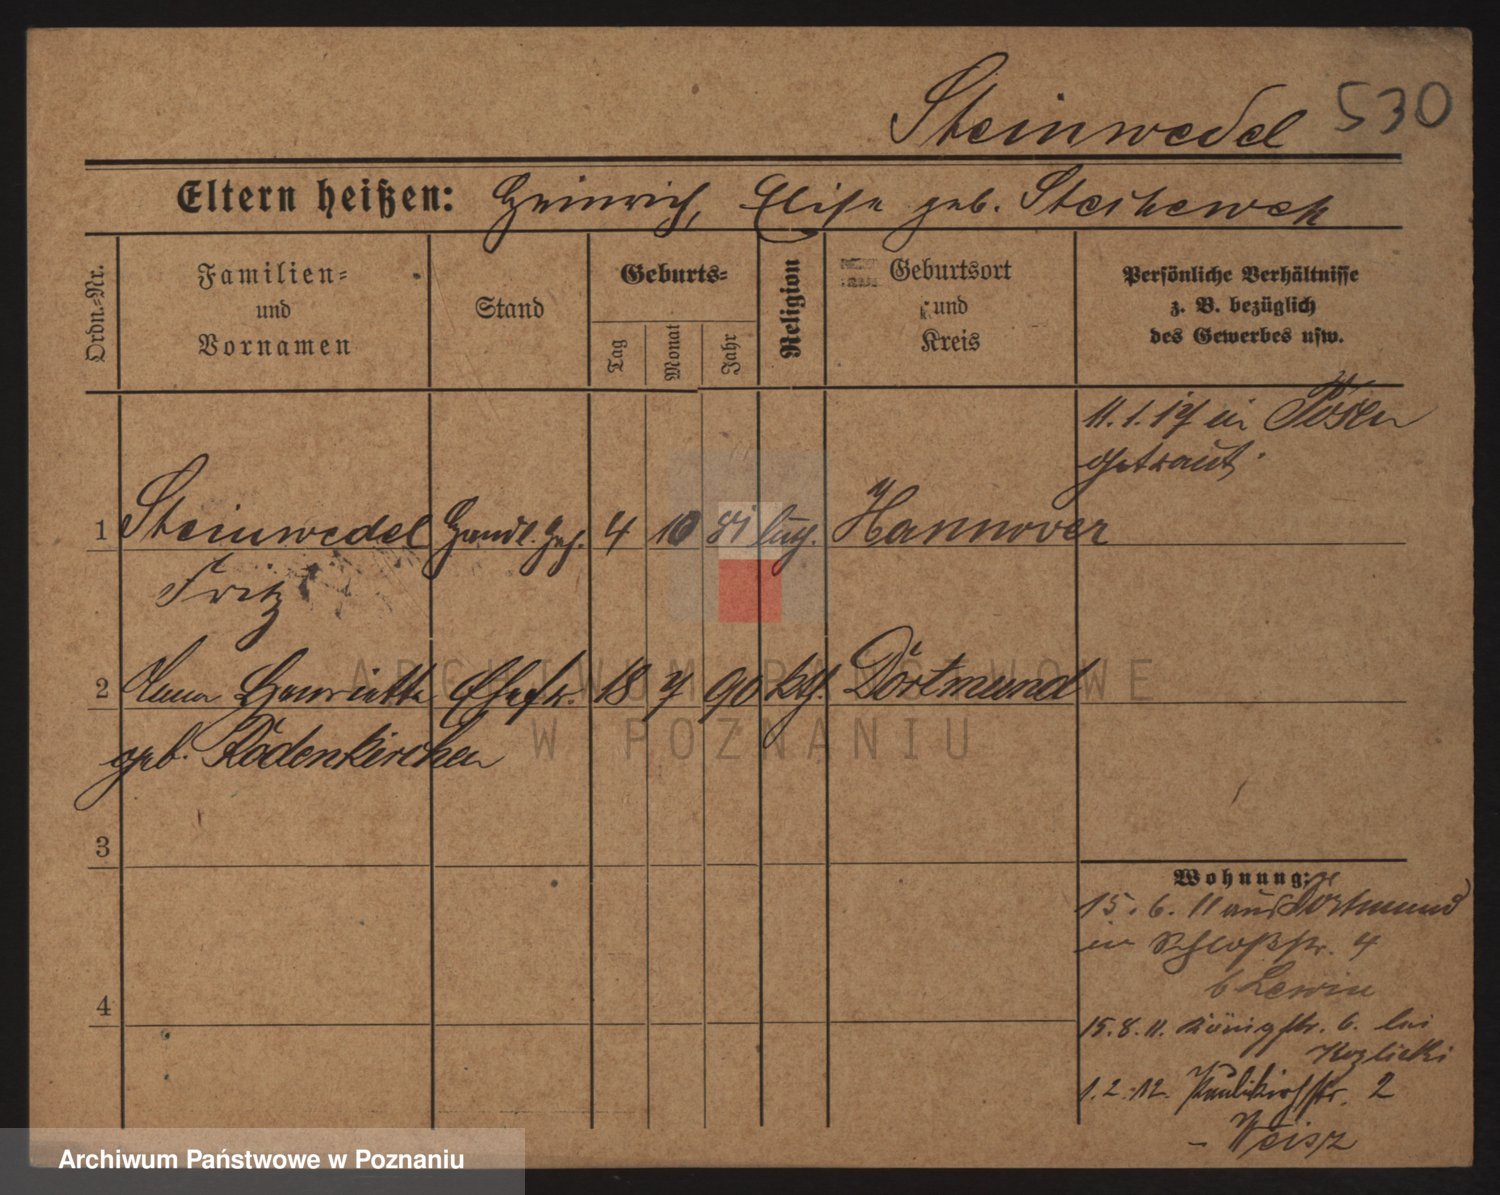 Steinwedel 530
Eltern heißen: Heinrich, Elise geb. Steihewek
Ordn.-Nr.
Familien-
und
Vornamen
Stand
Geburts-
Tag
Monat
Jahr
Religion
Geburtsort
und
Kreis
Persönliche Verhältnisse
z. B. bezüglich
des Gewerbes usw.
11.1.17 in Posen
getraut.
1 Steinwedel Handl. Geh. 4 10 87 lug. Hannover
Fritz
2 Henriette Ehefr. 18 7 90 ktl. Dortmund
geb. Rodenkirchen
3
4
Wohnung:
15. 6. 11 aus Dortmund
in Schloßstr. 4
b Lewin
15. 8. 11. Königstr. 6. bei
Kozlicki
1. 2. 12. Paulikirchstr. 2
- Weisz
ARCHIWUM PAŃSTWOWE
W POZNANIU
Archiwum Państwowe w Poznaniu